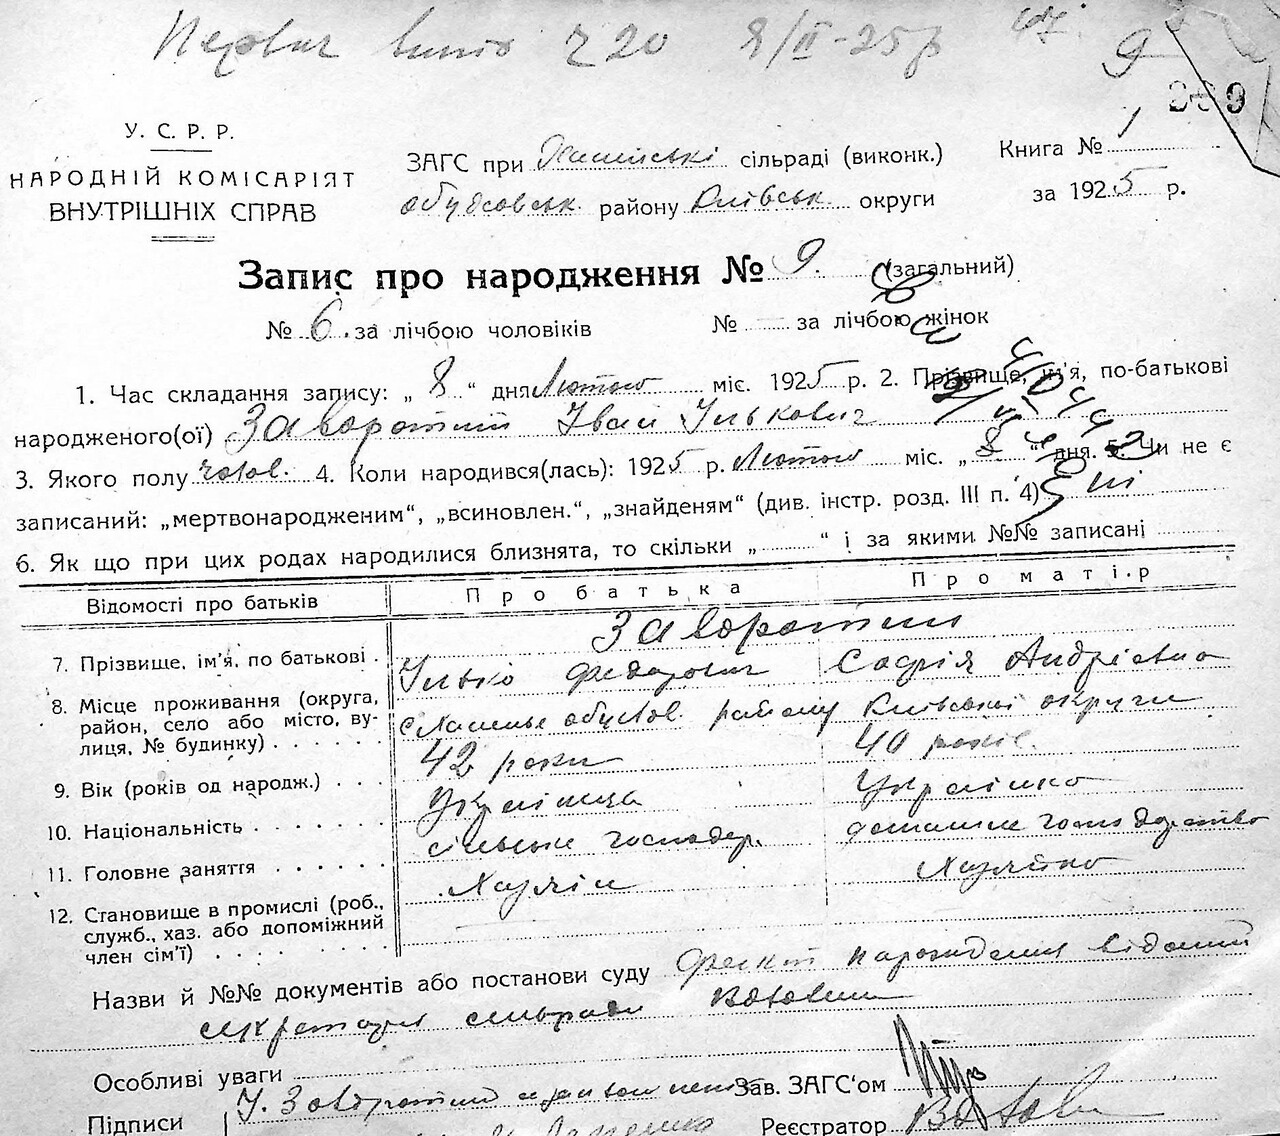 № 20 8/II-25р
9
У. С. Р. Р.
НАРОДНІЙ КОМІСАРІЯТ
ВНУТРІШНІХ СПРАВ
ЗАГС при сільраді (виконк.)
району Київськ. округи
Книга № 1
за 1925 р.
Запис про народження № 9. (загальний)
№ 6. за лічбою чоловіків № за лічбою жінок
1. Час складання запису: „ 8 “ дня Лютого міс. 1925 р. 2. Прізвище, ім'я, по-батькові
народженого(ої) Заворотний Іван Ількович
3. Якого полу чолов. 4. Коли народився(лась): 1925 р. Лютого міс. „ 8 “ дня. 5. Чи не є
записаний: „мертвонародженим“, „всиновлен.“, „знайденям“ (див. інстр. розд. III п. 4)
6. Як що при цих родах народилися близнята, то скільки „ “ і за якими №№ записані
Відомості про батьків Про батька Про матір
Заворотний
7. Прізвище, ім'я, по батькові . Ілько Федорович Софія Андріевна
8. Місце проживання (округа, район, село або місто, вулиця, № будинку) району Київської округи
9. Вік (років од народж.) . . . 42 роки 40 років.
10. Національність Українець Українка
11. Головне заняття сільське господар. домашнє господарство
12. Становище в промислі (роб., служб., хаз. або допоміжний член сім'ї) Хазяїн Хазяйка
Назви й №№ документів або постанови суду народження відомий
секретарю сільради
Особливі уваги
Зав. ЗАГС'ом
Підписи Заворотний
Реєстратор